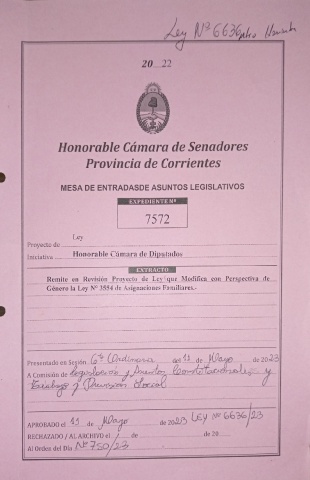 Ley Nº 6636
20 22
Honorable Cámara de Senadores
Provincia de Corrientes
MESA DE ENTRADASDE ASUNTOS LEGISLATIVOS
EXPEDIENTE Nº
7572
Proyecto de Ley
Iniciativa Honorable Cámara de Diputados
EXTRACTO
Remite en Revisión Proyecto de Ley que Modifica con Perspectiva de
Género la Ley Nº 3554 de Asignaciones Familiares.-
Presentado en Sesión 6º Ordinaria de 11 de Mayo de 2023
A Comisión de Legislación y Asuntos Constitucionales y
Trabajo y Previsión Social
APROBADO el 11 de Mayo de 2023 LEY Nº 6636/23
RECHAZADO / AL ARCHIVO el de de 20
Al Orden del Día Nº 750/23